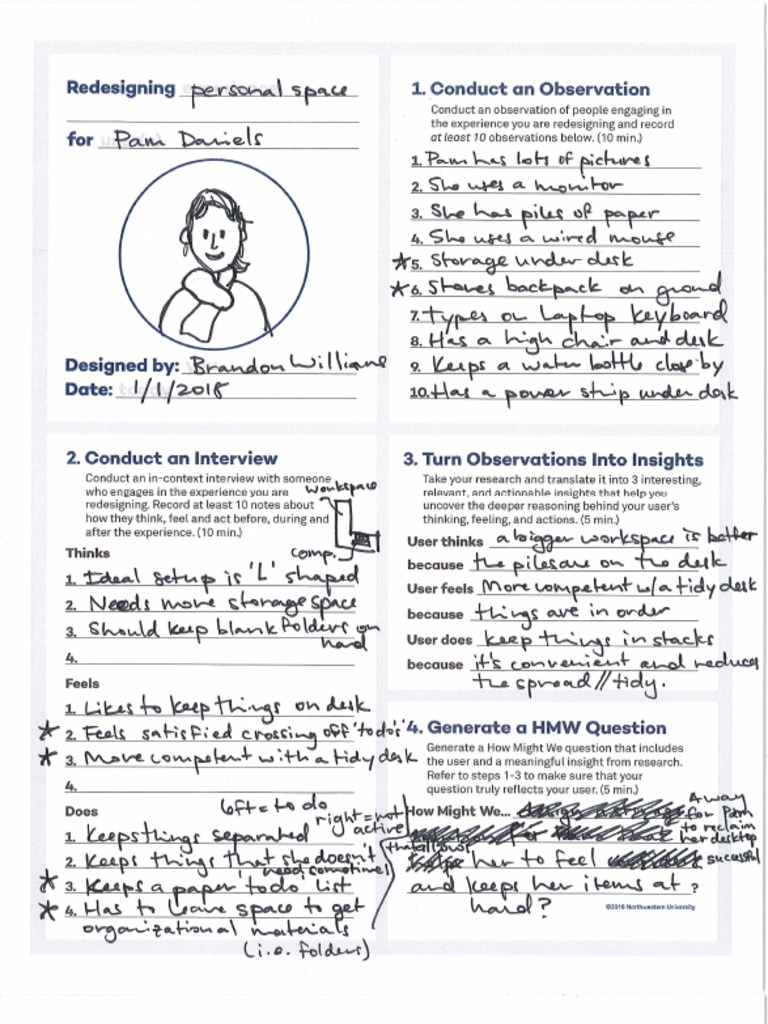 Redesigning personal space
for Pam Daniels
Designed by: Brandon Williams
Date: 1/1/2018
1. Conduct an Observation
Conduct an observation of people engaging in
the experience you are redesigning and record
at least 10 observations below. (10 min.)
1. Pam has lots of pictures
2. She uses a monitor
3. She has piles of paper
4. She uses a wired mouse
*5. Storage under desk
*6. Stores backpack on ground
7. types on laptop keyboard
8. Has a high chair and desk
9. Keeps a water bottle close by
10. Has a power strip under desk
2. Conduct an Interview
Conduct an in-context interview with someone
who engages in the experience you are
redesigning. Record at least 10 notes about
how they think, feel and act before, during and
after the experience. (10 min.)
workspace
comp.
Thinks
1. Ideal setup is 'L' shaped
2. Needs more storage space
3. Should keep blank folders on
hand
4.
Feels
1. Likes to keep things on desk
*2. Feels satisfied crossing off 'to do's'
*3. More competent with a tidy desk
4.
Does
left = to do
right = not
active
1. Keeps things separated
2. Keeps things that she doesn't
need sometimes
*3. Keeps a paper 'to do' list
*4. Has to leave space to get
organizational materials
(i.e. folders)
3. Turn Observations Into Insights
Take your research and translate it into 3 interesting,
relevant, and actionable insights that help you
uncover the deeper reasoning behind your user's
thinking, feeling, and actions. (5 min.)
User thinks a bigger workspace is better
because the piles are on the desk
User feels More competent w/a tidy desk
because things are in order
User does keep things in stacks
because it's convenient and reduces
the spread // tidy.
4. Generate a HMW Question
Generate a How Might We question that includes
the user and a meaningful insight from research.
Refer to steps 1-3 to make sure that your
question truly reflects your user. (5 min.)
How Might We...
A way
for Pam
to reclaim
her desktop
that allows
her to feel successful
and keeps her items at ?
hand?
©2016 Northwestern University